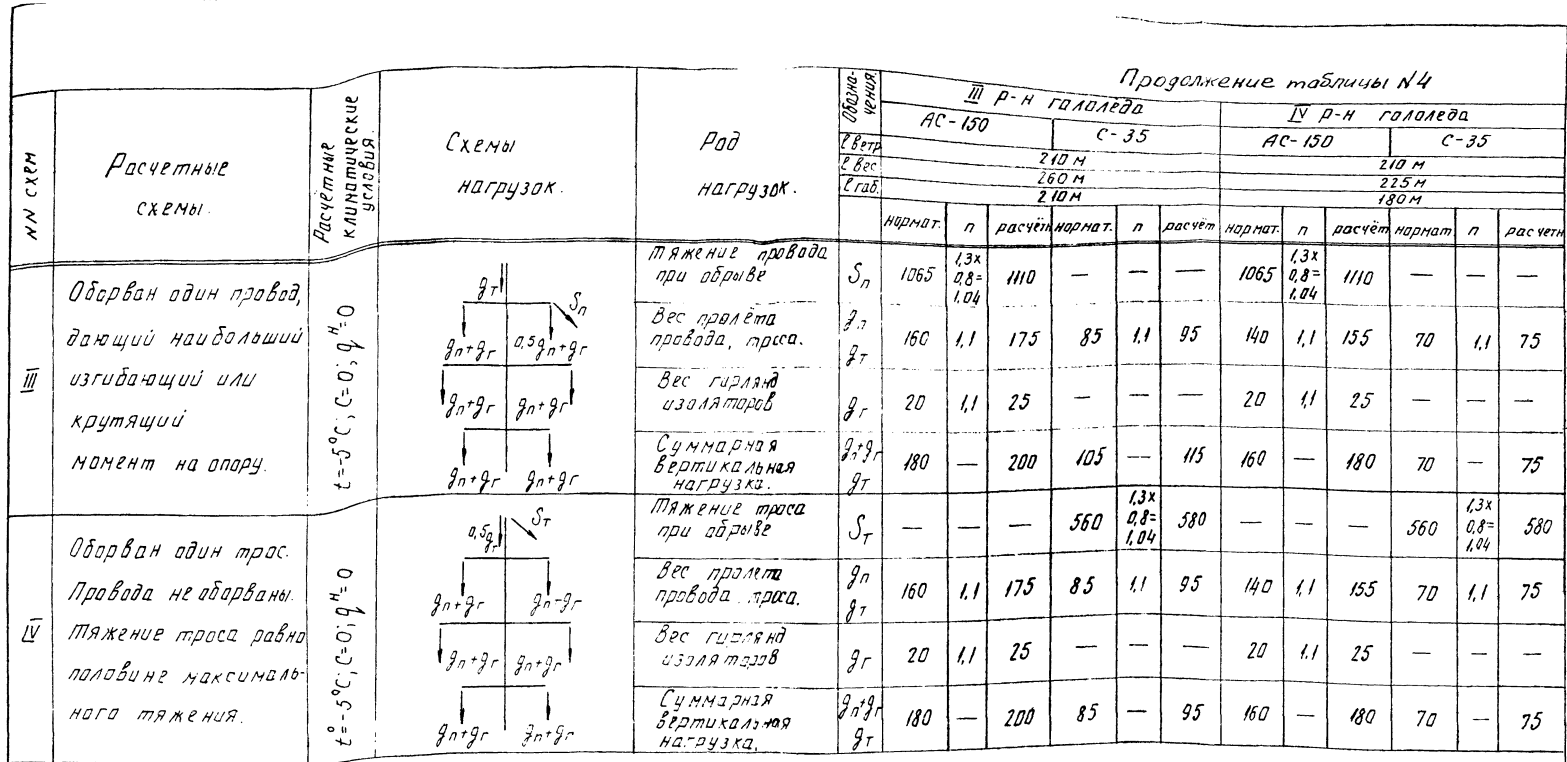 Продолжение таблицы N4
NN схем
Расчетные
схемы.
Расчётные
климатические
условия.
Схемы
нагрузок.
Род
нагрузок.
Обозна-
чения
III р-н гололёда
IV р-н гололеда
АС-150
С-35
АС-150
С-35
ℓ ветр
210 м
210 м
ℓ вес
260 м
225 м
ℓ габ.
210 м
180 м
нормат. n расчётн нормат. n расчёт нормат. n расчёт нормат n расчетн
III
Оборван один провод,
дающий наибольший
изгибающий или
крутящий
момент на опору.
t=-5°C; C=0; q^н=0
gт
Sп
gп+gг 0,5gп+gг
gп+gг gп+gг
gп+gг gп+gг
Тяжение провода
при обрыве
Sп 1065 1,3x 0,8= 1,04 1110 — — — 1065 1,3x 0,8= 1,04 1110 — — —
Вес пролёта
провода, троса.
gп
gт
160 1,1 175 85 1,1 95 140 1,1 155 70 1,1 75
Вес гирлянд
изоляторов
gг 20 1,1 25 — — — 20 1,1 25 — — —
Суммарная
вертикальная
нагрузка.
gп+gг
gт
180 — 200 105 — 115 160 — 180 70 — 75
IV
Оборван один трос.
Провода не оборваны.
Тяжение троса равно
половине максималь-
ного тяжения.
t°=-5°C; C=0; q^н=0
0,5gт
Sт
gп+gг gп-gг
gп+gг gп+gг
gп+gг gп+gг
Тяжение троса
при обрыве
Sт — — — 560 1,3x 0,8= 1,04 580 — — — 560 1,3x 0,8= 1,04 580
Вес пролета
провода троса.
gп
gт
160 1,1 175 85 1,1 95 140 1,1 155 70 1,1 75
Вес гирлянд
изоляторов
gг 20 1,1 25 — — — 20 1,1 25 — — —
Суммарная
вертикальная
нагрузка.
gп+gг
gт
180 — 200 85 — 95 160 — 180 70 — 75